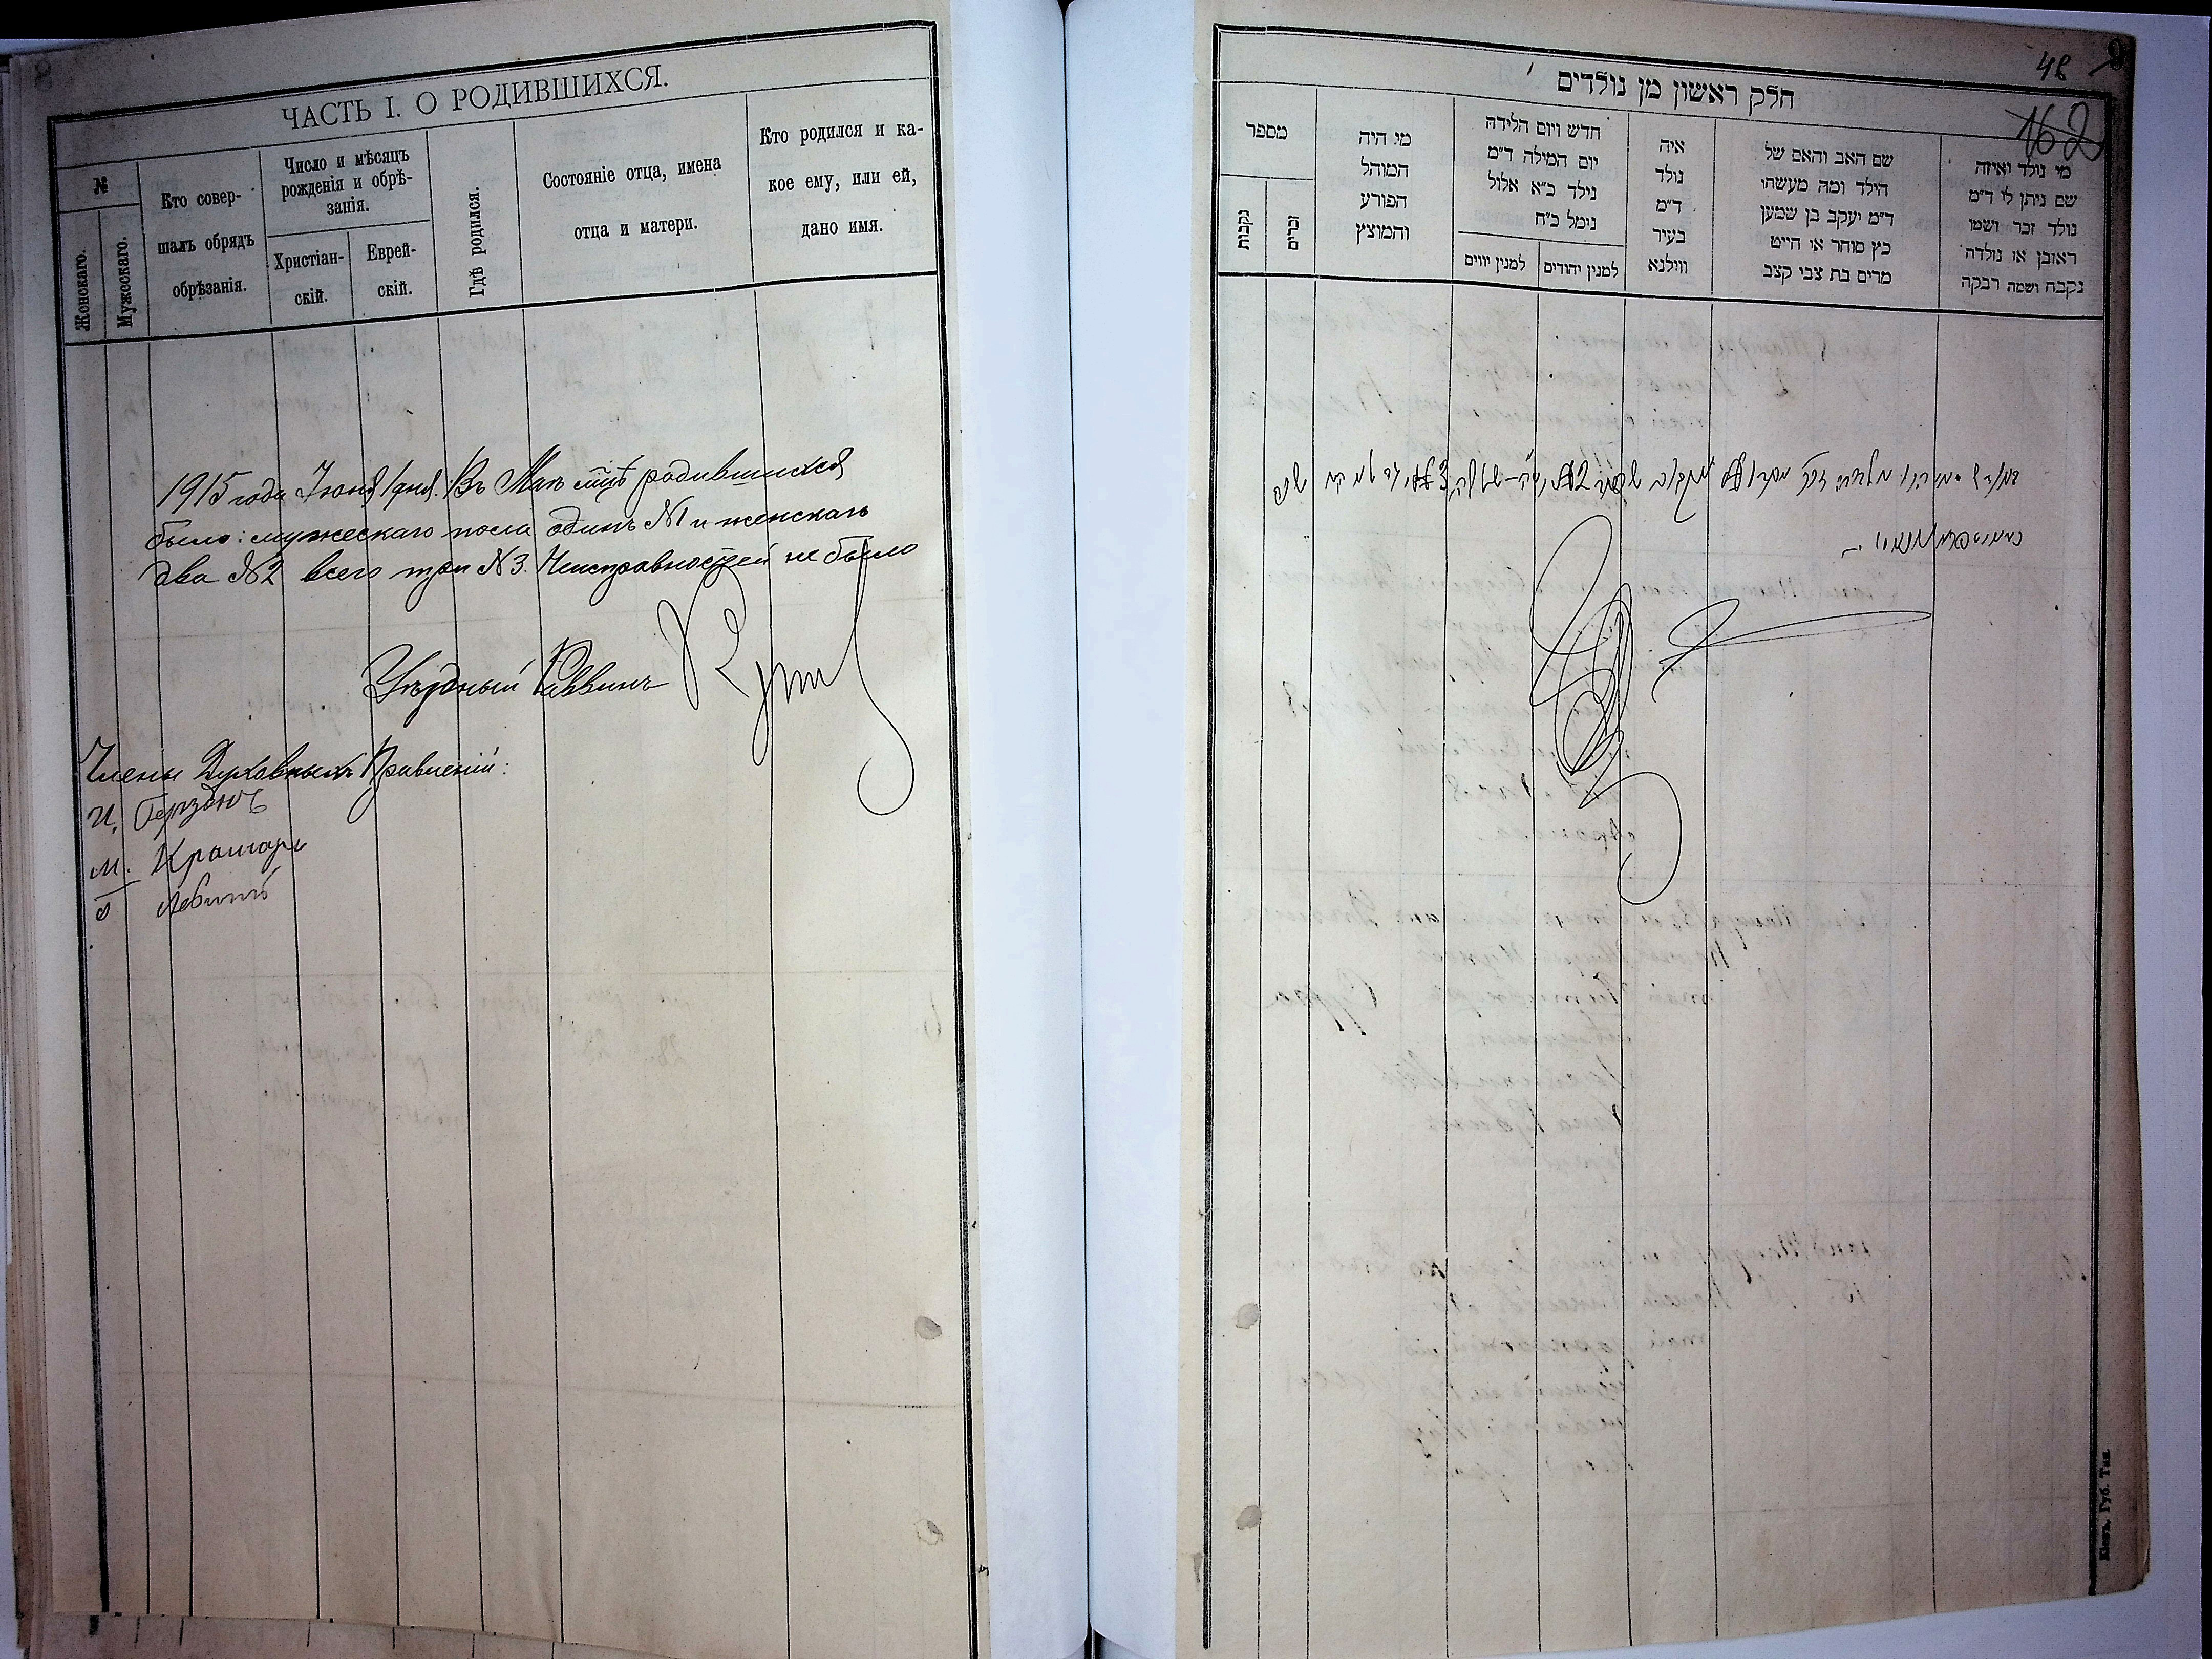 ЧАСТЬ I. О РОДИВШИХСЯ.
№
Женскаго.
Мужескаго.
Кто совер-
шалъ обрядъ
обрѣзанія.
Число и мѣсяцъ
рожденія и обрѣ-
занія.
Христіан-
скій.
Еврей-
скій.
Гдѣ родился.
Состояніе отца, имена
отца и матери.
Кто родился и ка-
кое ему, или ей,
дано имя.
1915 года Іюня 1 дня. Въ Маѣ м-цѣ родившихся
было: мужескаго пола одинъ №1 и женскаго
два №2 всего три №3. Неисправностей не было
Уѣздный Раввинъ
Члены Духовныхъ Правленій:
И. Герзонъ
М.
Левитъ
48
162
חלק ראשון מן נולדים
מספר
נקבות
זכרים
מי היה
המוהל
הפורע
והמוצץ
חדש ויום הלידה
יום המילה ד״מ
נילד כ״א אלול
נימל כ״ח
למנין יווים
למנין יהודים
איה
נולד
ד״מ
בעיר
ווילנא
שם האב והאם של
הילד ומה מעשתו
ד״מ יעקב בן שמען
כץ סוחר או חייט
מרים בת צבי קצב
מי נולד ואיזה
שם ניתן לי ד״מ
נולד זכר ושמו
ראובן או נולדה
נקבח ושמה רבקה
Кіевъ. Губ. Тип.